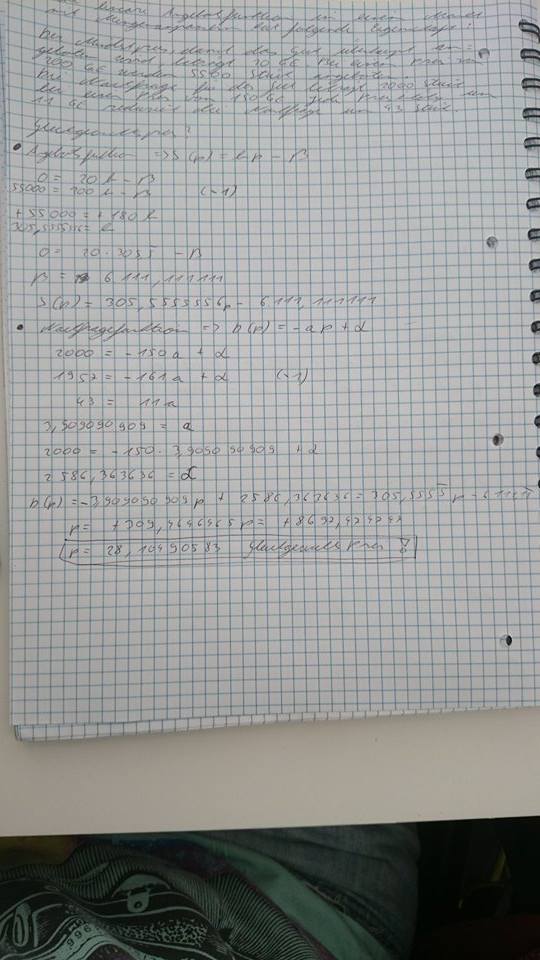 lineare Angebotsfunktion in einem Markt
mit folgende Eigenschaft:
Der Mindestpreis, damit das Gut überhaupt an-
geboten wird, beträgt 20 GE. Bei einem Preis von
200 GE werden 5500 Stück angeboten.
Die Nachfrage für das Gut beträgt 2000 Stück
bei einem Preis von 150 GE. Jede um
11 GE reduziert die Nachfrage um 43 Stück.
Gleichgewichtspreis?
• Angebotsfunktion => S(p) = bp - β
0 = 20b - β
55000 = 200b - β (-1)
+55000 = +180b
305,555556 = b
0 = 20 · 305,5 - β
β = 6111,111111
S(p) = 305,5555556p - 6111,111111
• Nachfragefunktion => D(p) = -ap + α
2000 = -150a + α
1957 = -161a + α (-1)
43 = 11a
3,909090909 = a
2000 = -150 · 3,909090909 + α
2586,363636 = α
D(p) = -3,909090909p + 2586,363636 = 305,5555p - 6111,11
p = +309,4646465p = +8697,474747
p = 28,10490583 Gleichgewichtspreis!
996